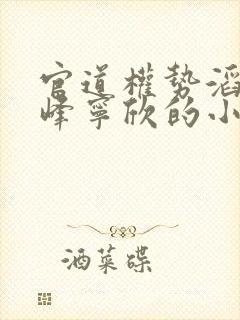 官道權勢滔
峰寧欣的小
酒菜碟